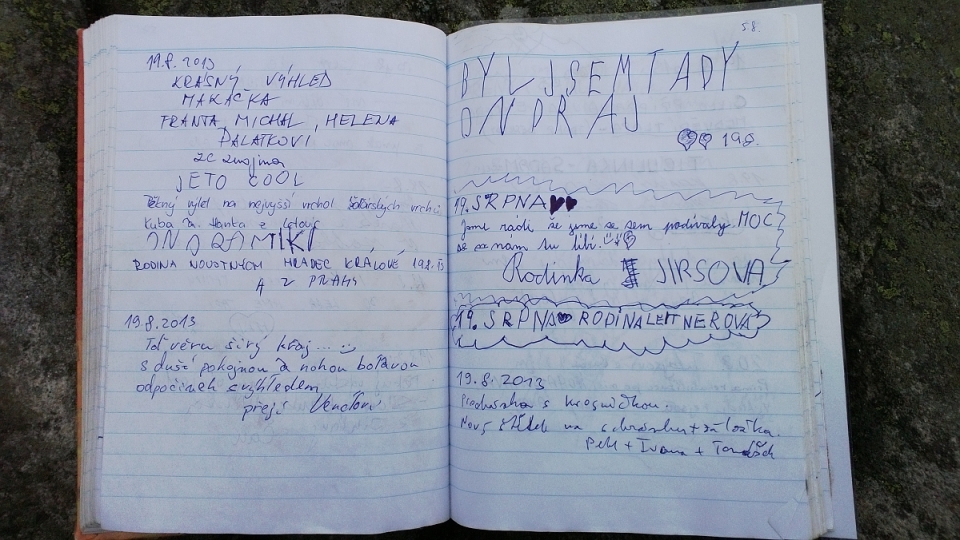 19.8.2013
KRÁSNÝ VÝHLED
MAKAČKA
FRANTA, MICHAL, HELENA
PALATKOVI
ZC Znojma
JETO COOL
výlet na nejvyšší vrchol vrchů
Kuba a Hanka z Letovic
RODINA NOVOTNÝCH HRADEC KRÁLOVÉ 19.8.13
A Z PRAHY
19.8.2013
Toť věru širý kraj...
s duší pokojnou a nohou bolavou
odpočinek s výhledem
přejí
58.
BYL JSEM TADY
ONDRAJ
19.8.
19. SRPNA
Jsme rádi že jsme se sem podívaly. MOC
se nám tu líbí.
Rodinka JIRSOVA
19. SRPNA RODINA LEITNEROVA
19.8.2013
Procházka s krosničkou.
Nový na schránku + záložka.
Petr + Ivana + Tomášek